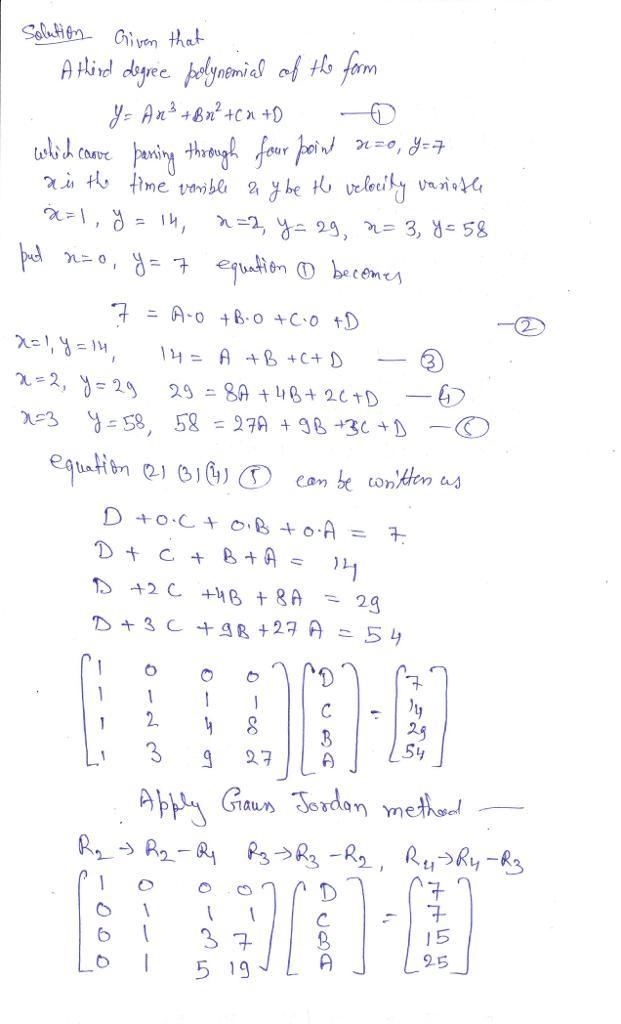 Solution Given that
A third degree polynomial of the form
y = Ax³ + Bx² + Cx + D —①
which carve passing through four point x=0, y=7
x is the time varible & y be the velocity variable
x=1, y = 14, x=2, y= 29, x= 3, y= 58
put x=0, y= 7 equation ① becomes
7 = A·0 + B·0 + C·0 + D —②
x=1, y=14, 14 = A + B + C + D —③
x=2, y=29 29 = 8A + 4B + 2C + D —④
x=3 y=58, 58 = 27A + 9B + 3C + D —⑤
equation (2) (3) (4) ⑤ can be written as
D + 0·C + 0·B + 0·A = 7
D + C + B + A = 14
D + 2C + 4B + 8A = 29
D + 3C + 9B + 27A = 54
[1 0 0 0] [D] [7]
[1 1 1 1] [C] = [14]
[1 2 4 8] [B] [29]
[1 3 9 27] [A] [54]
Apply Gauss Jordan method —
R₂ → R₂ - R₁ R₃ → R₃ - R₂, R₄ → R₄ - R₃
[1 0 0 0] [D] [7]
[0 1 1 1] [C] = [7]
[0 1 3 7] [B] [15]
[0 1 5 19] [A] [25]